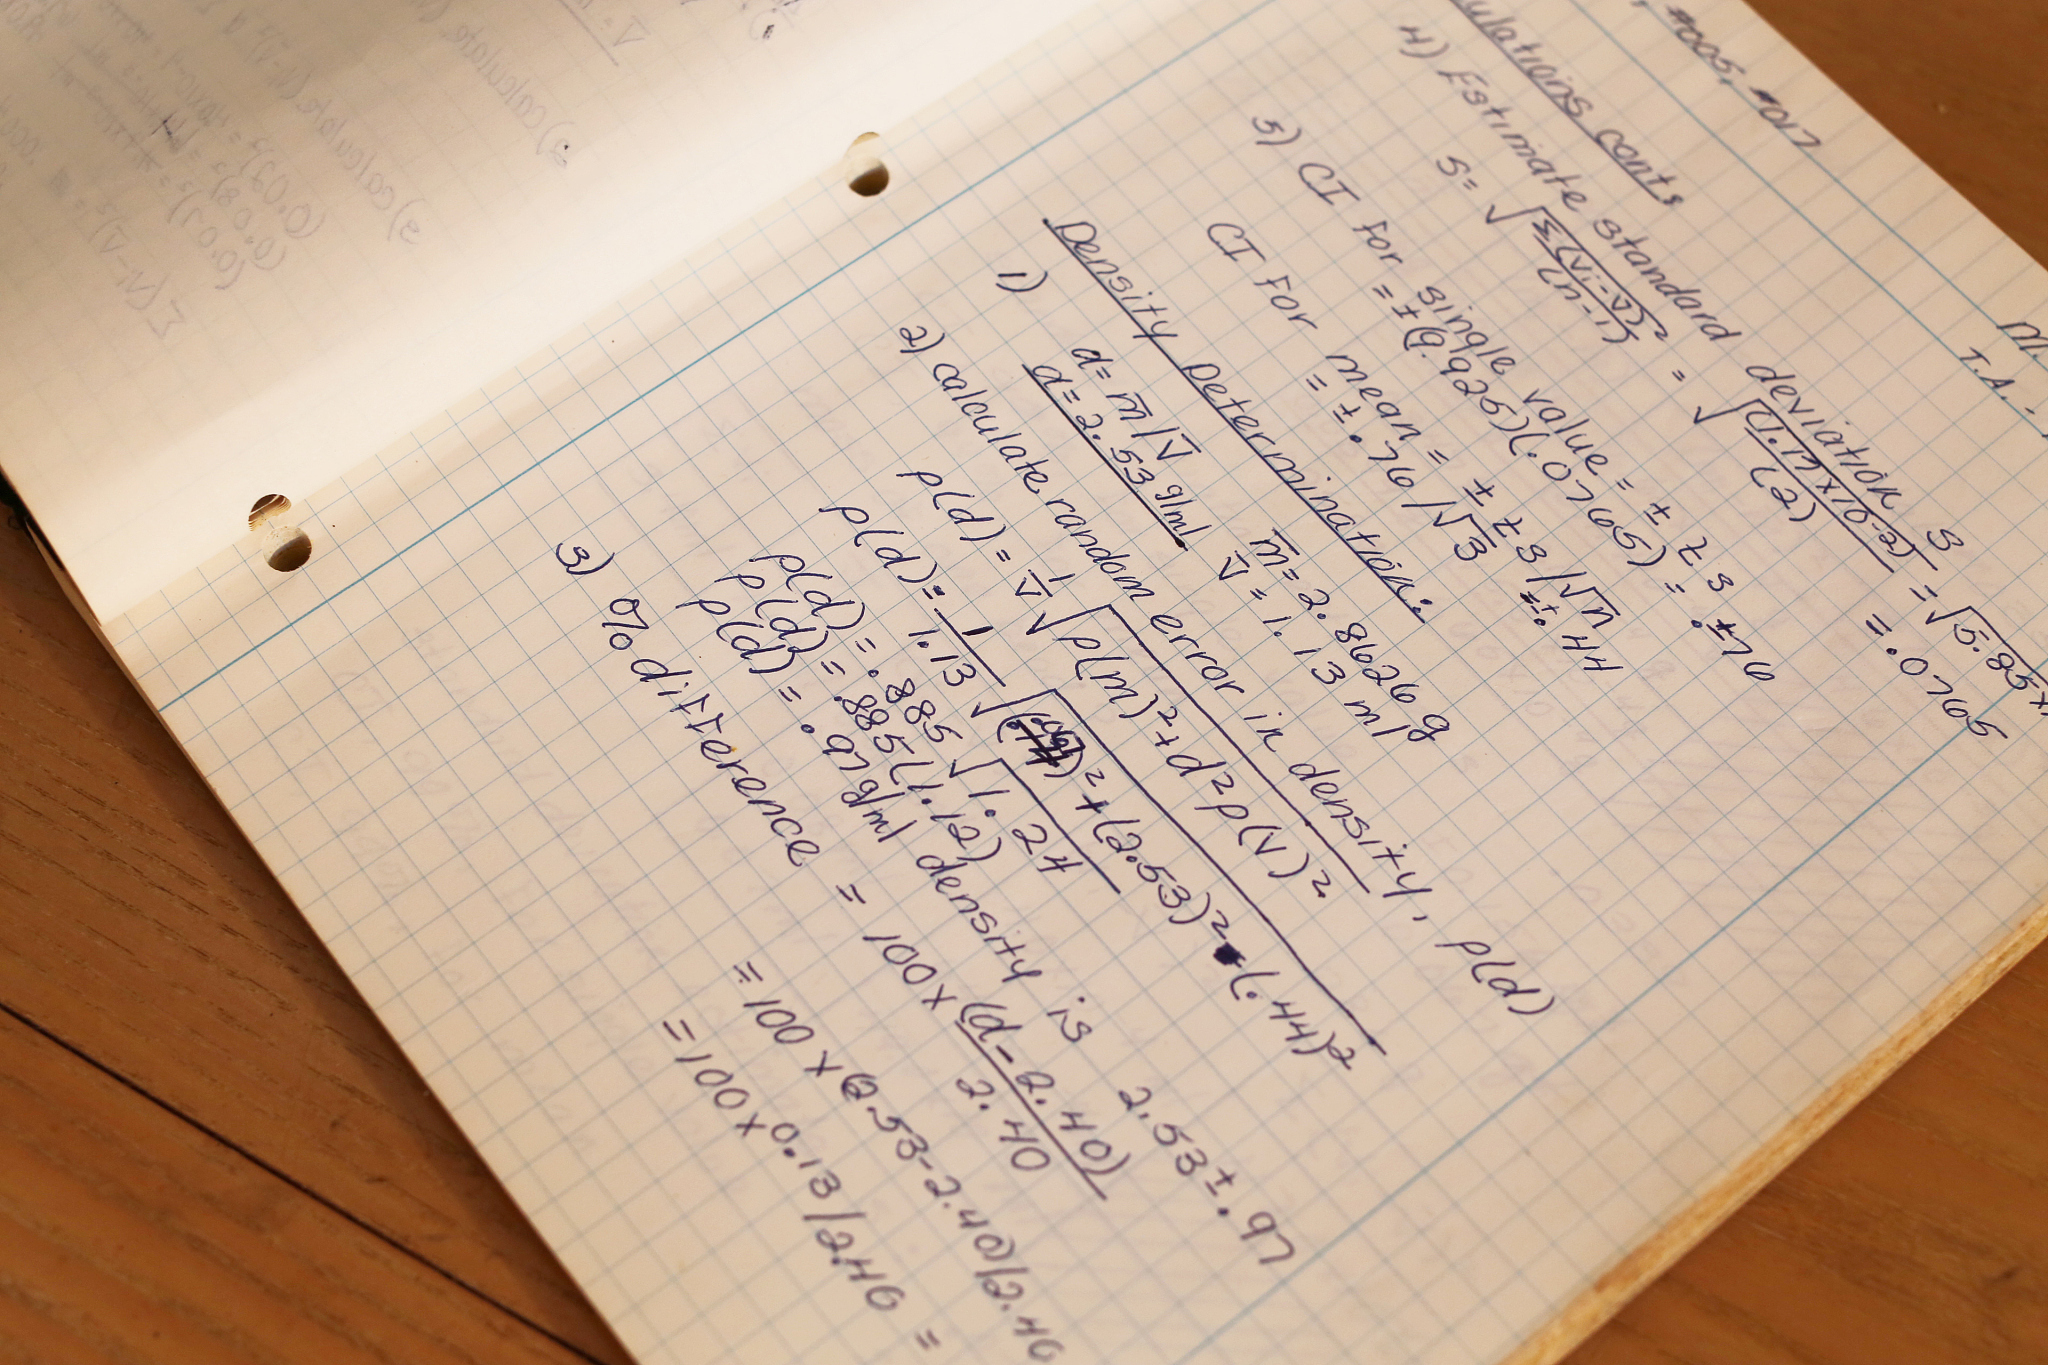 #005, #017
T.A.
conts
4) Estimate standard deviation S
S= √Σ(Vi-V̄)² / (n-1) = √(1.17x10⁻²) / (2) = √5.85x
= .0765
5) CI for single value = ± t s
= ±(9.925)(.0765) = ±.76
CI for mean = ± t s/√n
= ± .76/√3 = ±.44
Density Determination:
1) d = m̄/V̄ m̄= 2.8626 g
d= 2.53 g/ml V̄= 1.13 ml
2) calculate random error in density, p(d)
p(d) = 1/V̄ √p(m)²+d²p(V)²
p(d) = 1/1.13 √( )²+(2.53)² (.44)²
p(d) = .885 √1.24
p(d) = .885(1.12)
p(d) = .97g/ml density is 2.53±.97
3) % difference = 100x (d-2.40) / 2.40
= 100 x (2.53-2.40)/2.40
= 100 x 0.13/2.40 =
2) calculate
3) calculate (Vi-V̄)²
Σ(Vi-V̄)²